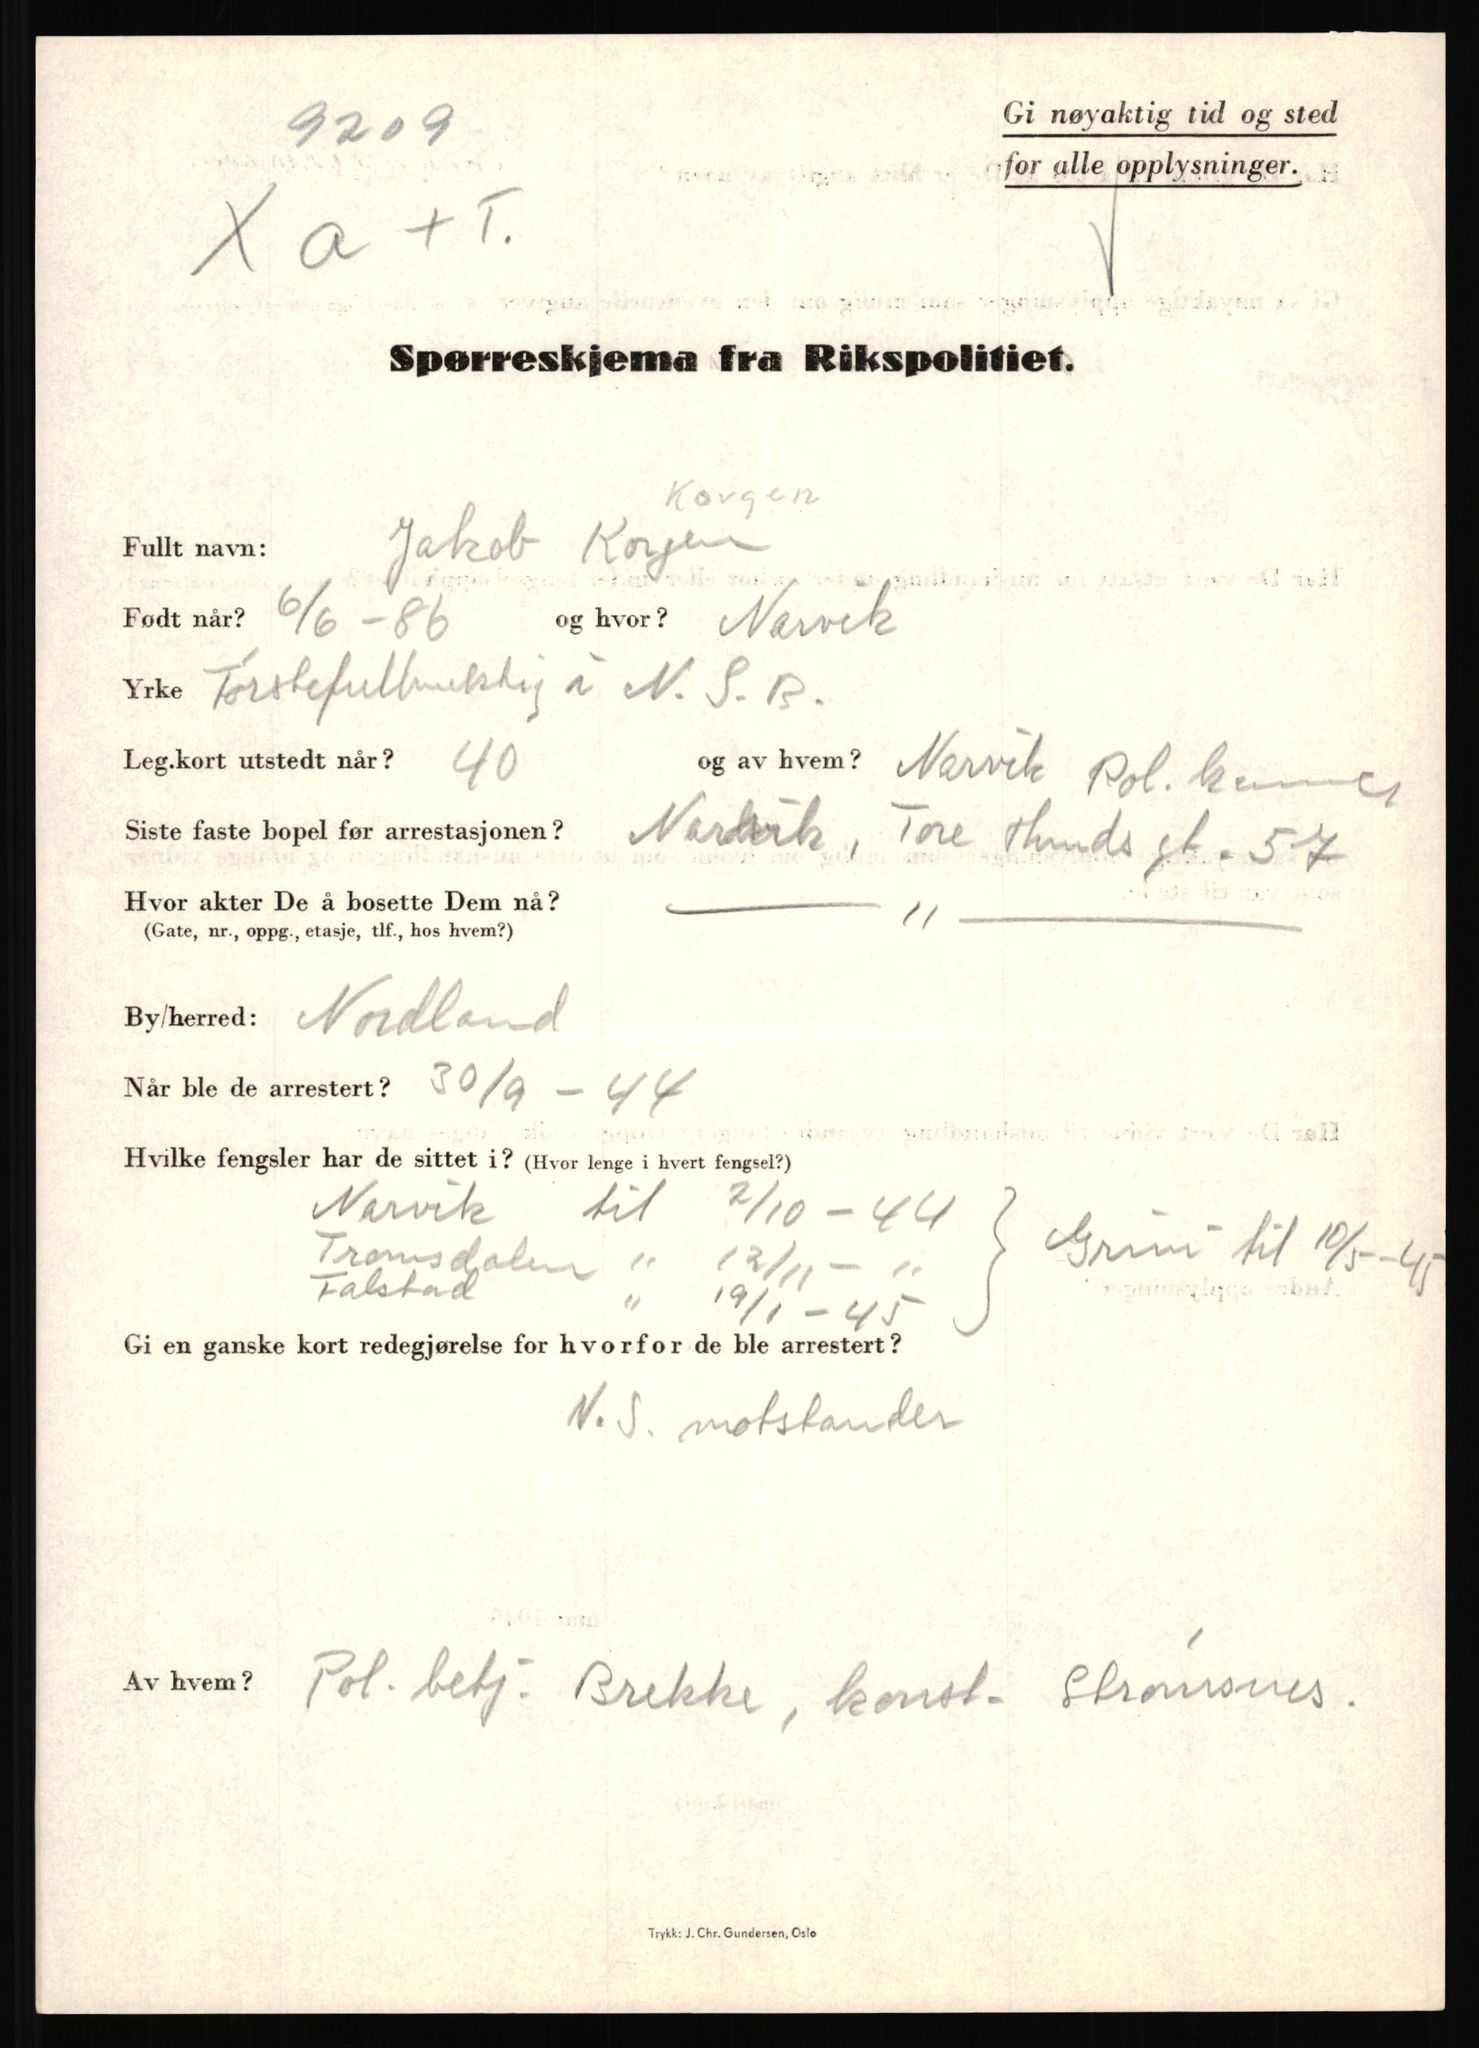 9209
Gi nøyaktig tid og sted
for alle opplysninger.
X a + T.
Spørreskjema fra Rikspolitiet.
Korgen
Fullt navn: Jakob Korgen
Født når? 6/6 - 86 og hvor? Narvik
Yrke Førstefullmektig i N. S. B.
Leg.kort utstedt når? 40 og av hvem? Narvik Pol. kammer
Siste faste bopel før arrestasjonen? Narvik, Tore Hunds gt. 57
Hvor akter De å bosette Dem nå? — " —
(Gate, nr., oppg., etasje, tlf., hos hvem?)
By/herred: Nordland
Når ble de arrestert? 30/9 - 44
Hvilke fengsler har de sittet i? (Hvor lenge i hvert fengsel?)
Narvik til 2/10 - 44
Tromsdalen " 12/11 - " } Grini til 10/5 - 45
Falstad " 19/1 - 45
Gi en ganske kort redegjørelse for hvorfor de ble arrestert?
N.S. motstander
Av hvem? Pol. betj. Brekke, konst. Strømsnes.
Trykk: J. Chr. Gundersen, Oslo